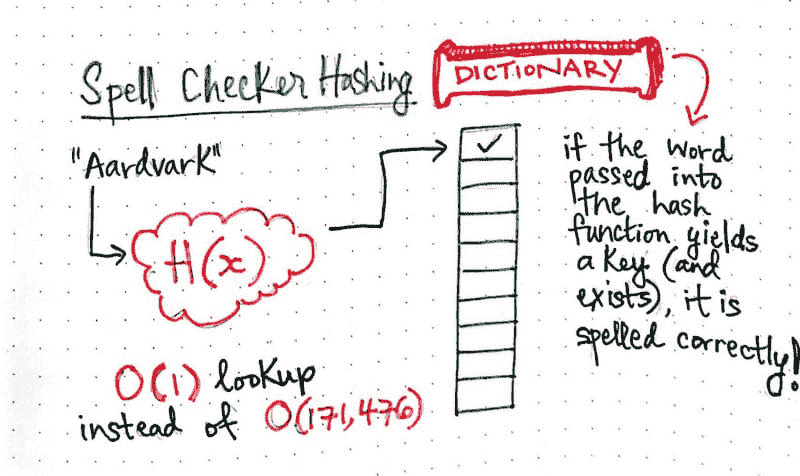 Spell Checker Hashing
DICTIONARY
"Aardvark"
H(x)
✓
if the word
passed into
the hash
function yields
a key (and
exists), it is
spelled correctly!
O(1) lookup
instead of O(171,476)